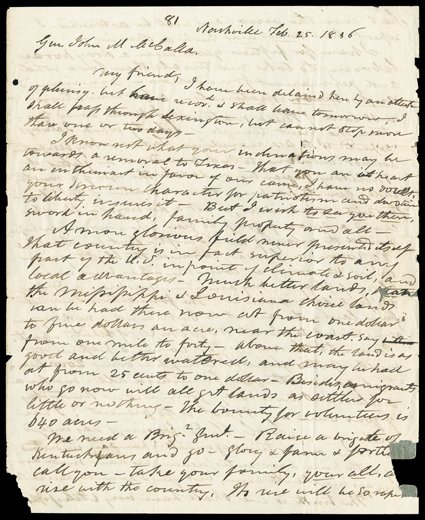 81
Nashville Feb. 25. 1836
Gen John M. McCalla.
My friend,
I have been detained here by an attack
of pleurisy. but have recovd. I shall leave tomorrow, I
shall pass through Lexington, but cannot stop more
than one or two days -
I know not what your inclinations may be
towards a removal to Texas - that you are at heart
an enthusiast in favor of our cause, I have no doubt,
your known character for patriotism and devotion
to liberty, insures it - But I wish to see you there,
sword in hand, family property and all -
A more glorious field never presented itself
that country is in fact superior to any
part of the U.S. in point of climate & soil, and
local advantages - Much better lands, than
the Mississippi & Louisiana choice lands
can be had there now at from one dollar
to five dollars an acre, near the coast, say
from one mile to forty - above that, the land is as
good and better watered, and may be had
at from 25 cents to one dollar - Besides emigrants
who go now will all get lands as settlers for
little or nothing - The bounty for volunteers is
640 acres -
We need a Brigr Genl. - Raise a brigade of
Kentuckians and go - glory & fame & fortune
call you - take your family, your all, &
rise with the country, It will be